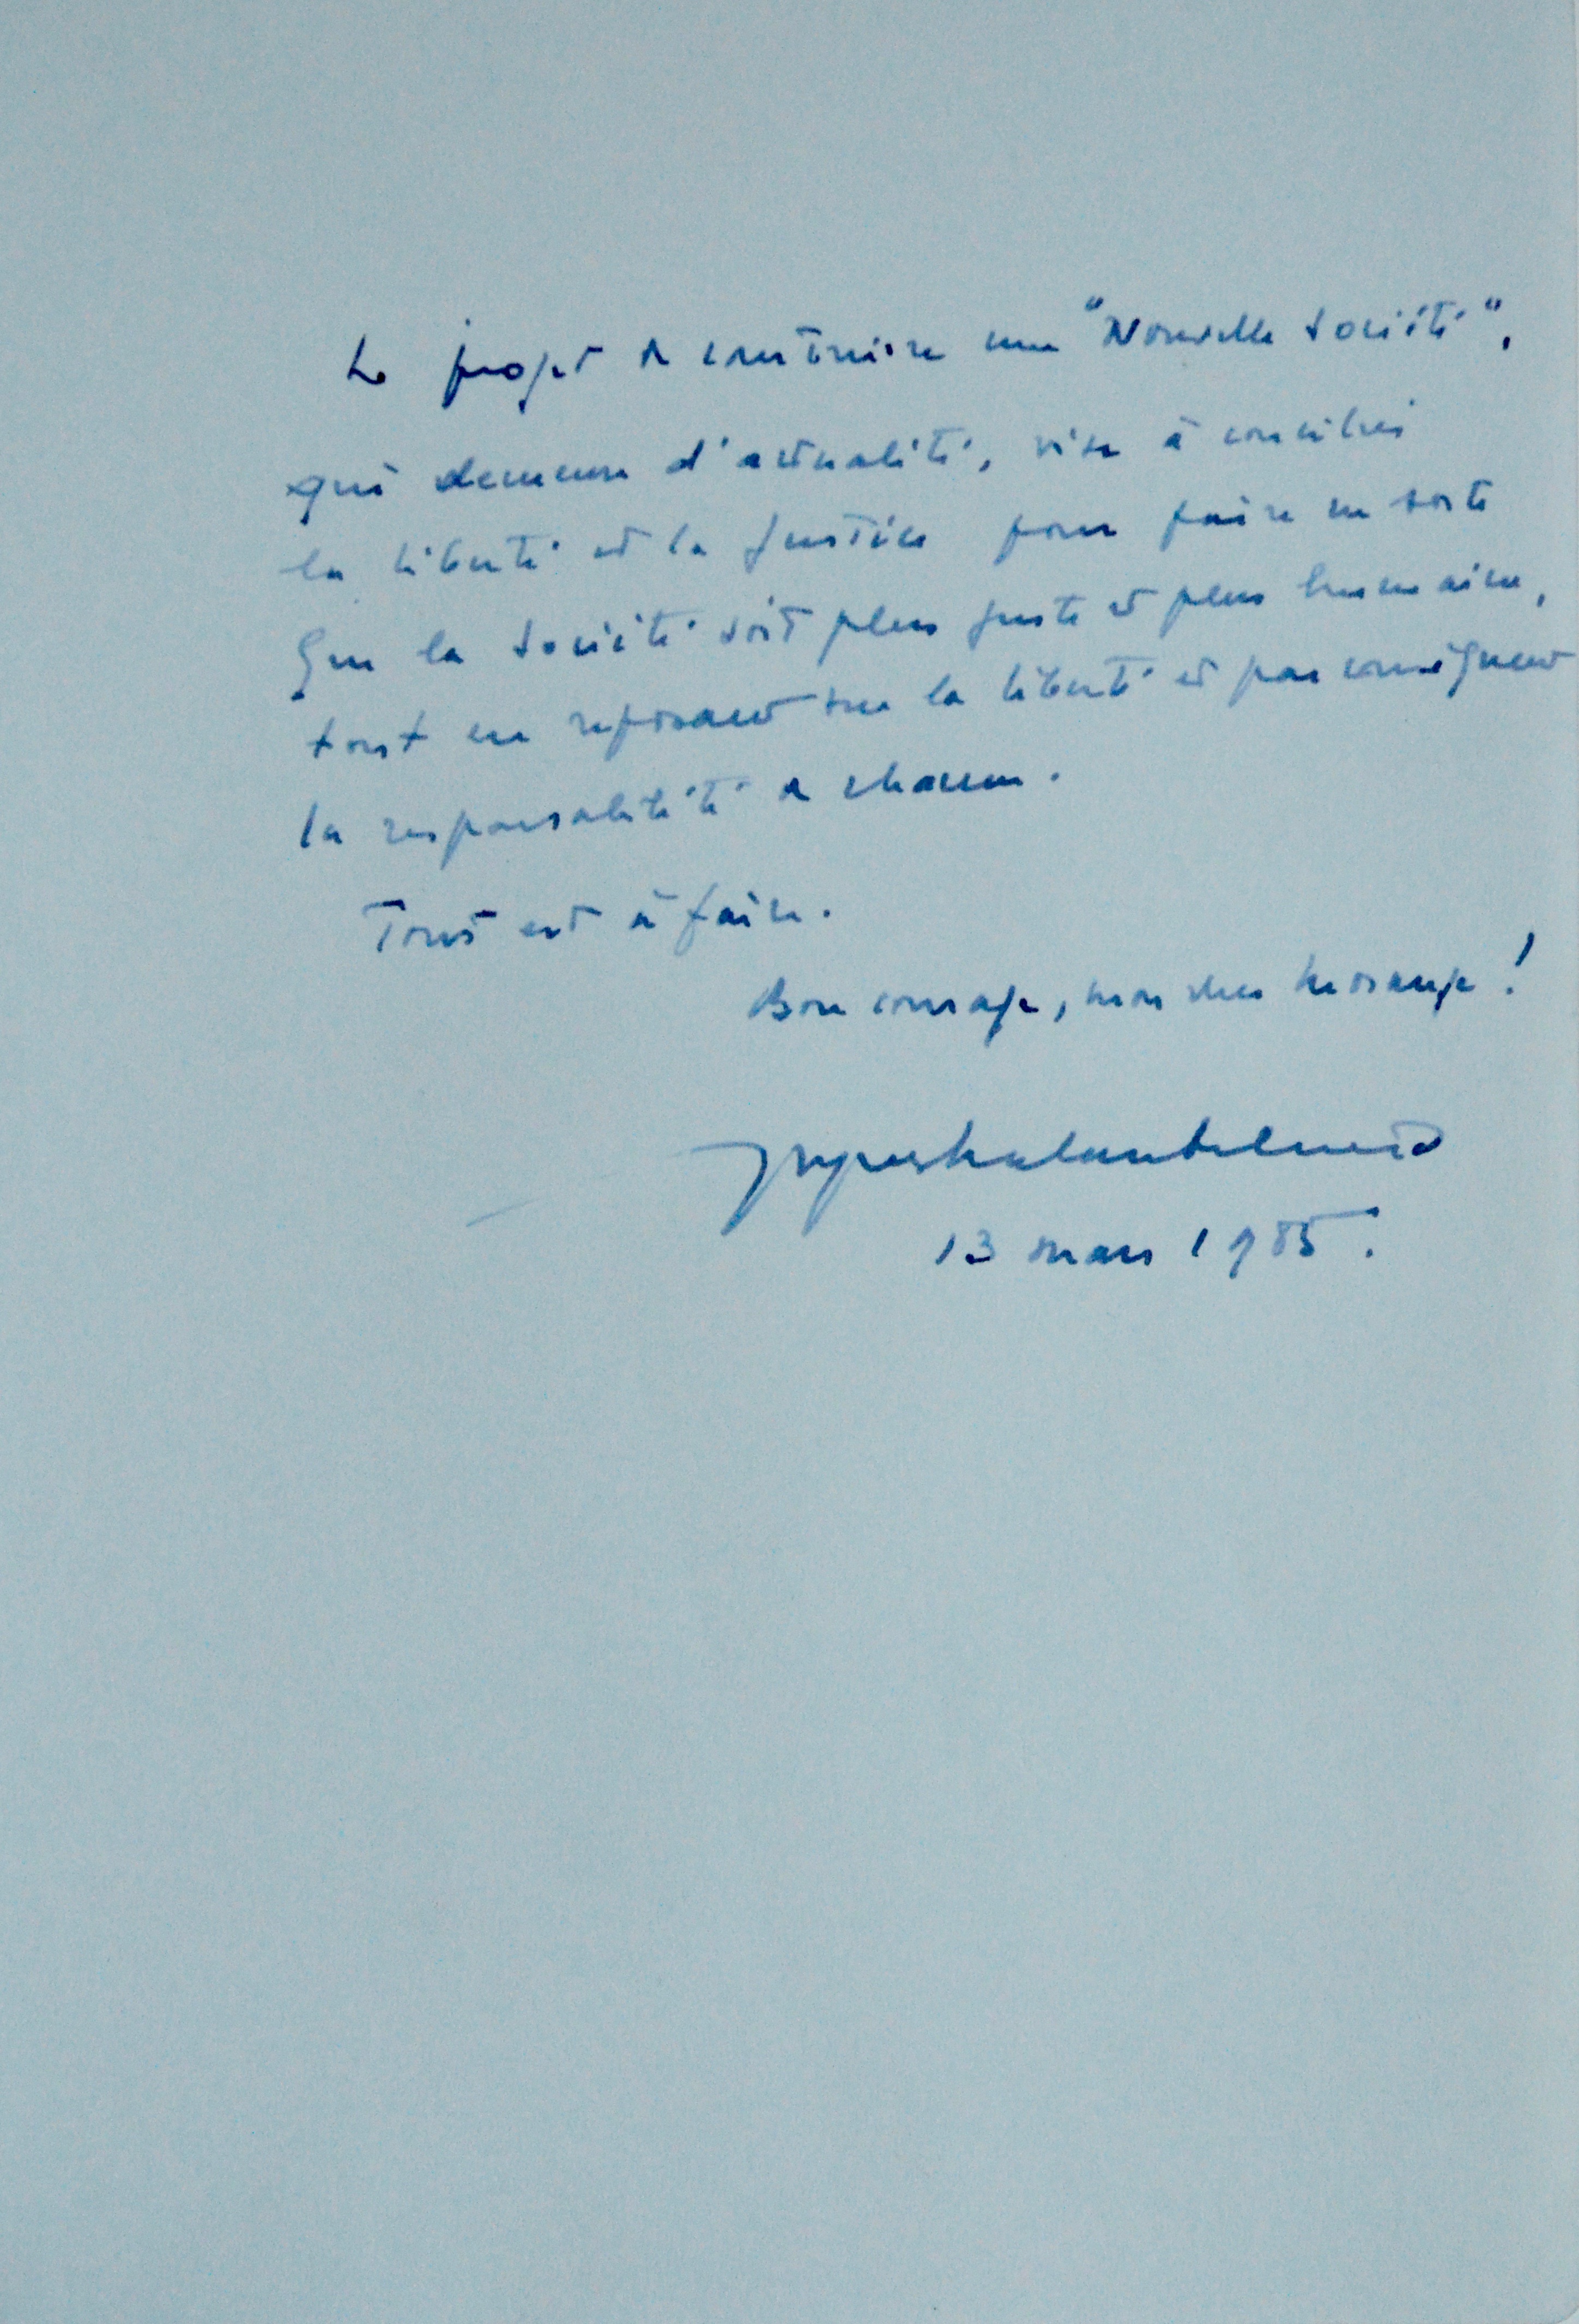 Le projet de construire une "Nouvelle Société",
qui demeure d'actualité, vise à concilier
la liberté et la justice pour faire en sorte
Que la société soit plus juste et plus humaine,
tout en reposant sur la liberté et par conséquent
la responsabilité de chacun.
Tout est à faire.
Bon courage, mon cher !
13 mars 1985.